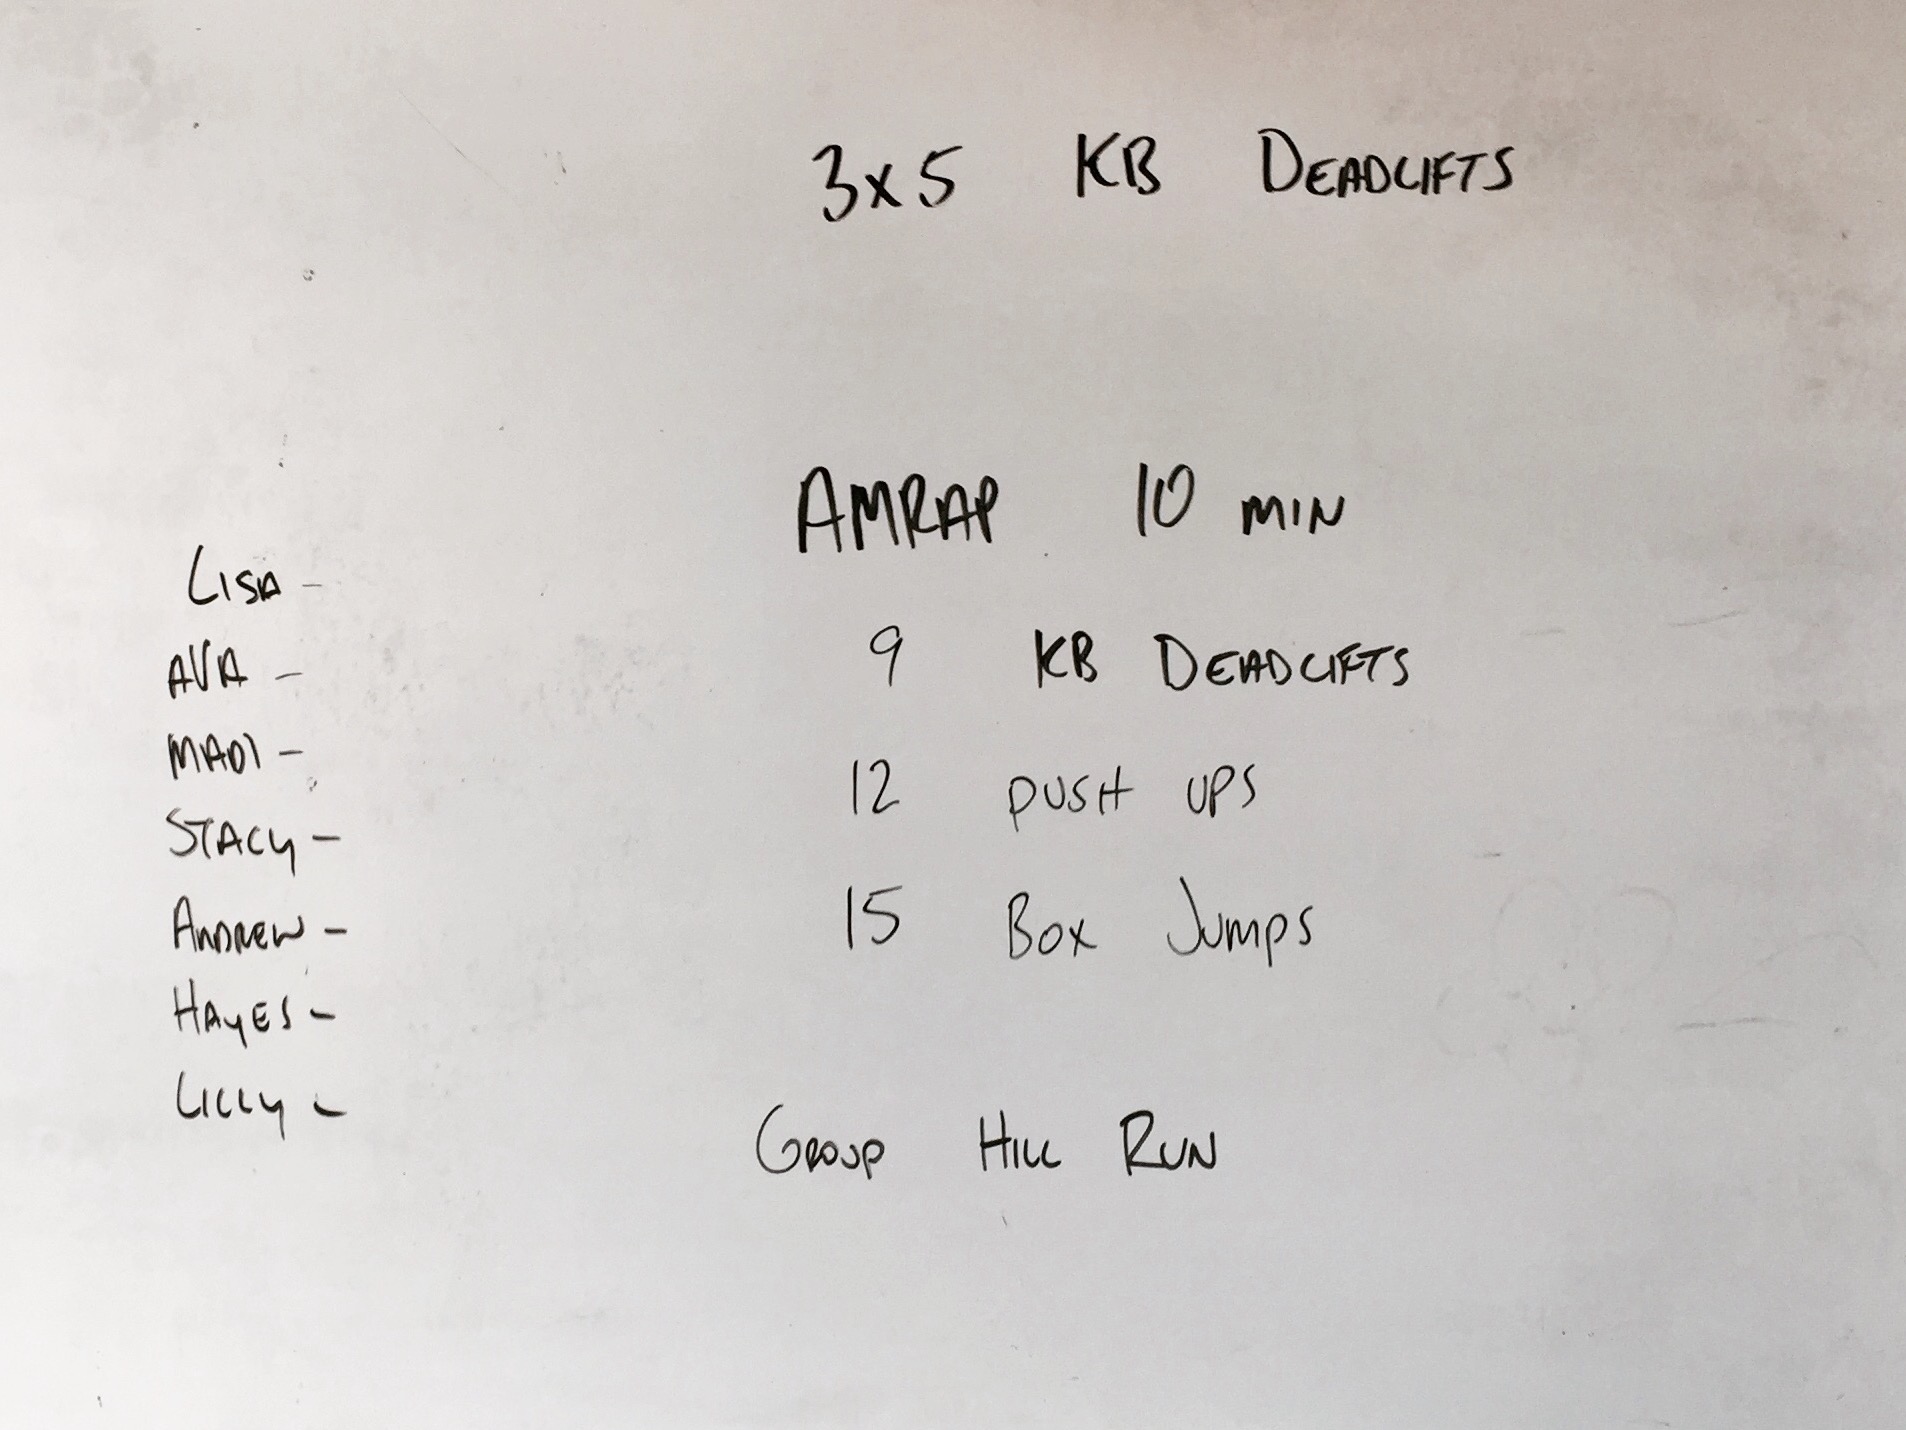 3x5 KB DEADLIFTS
AMRAP 10 MIN
9 KB DEADLIFTS
12 PUSH UPS
15 BOX JUMPS
GROUP HILL RUN
LISA -
AVA -
MADI -
STACY -
ANDREW -
HAYES -
LILLY -